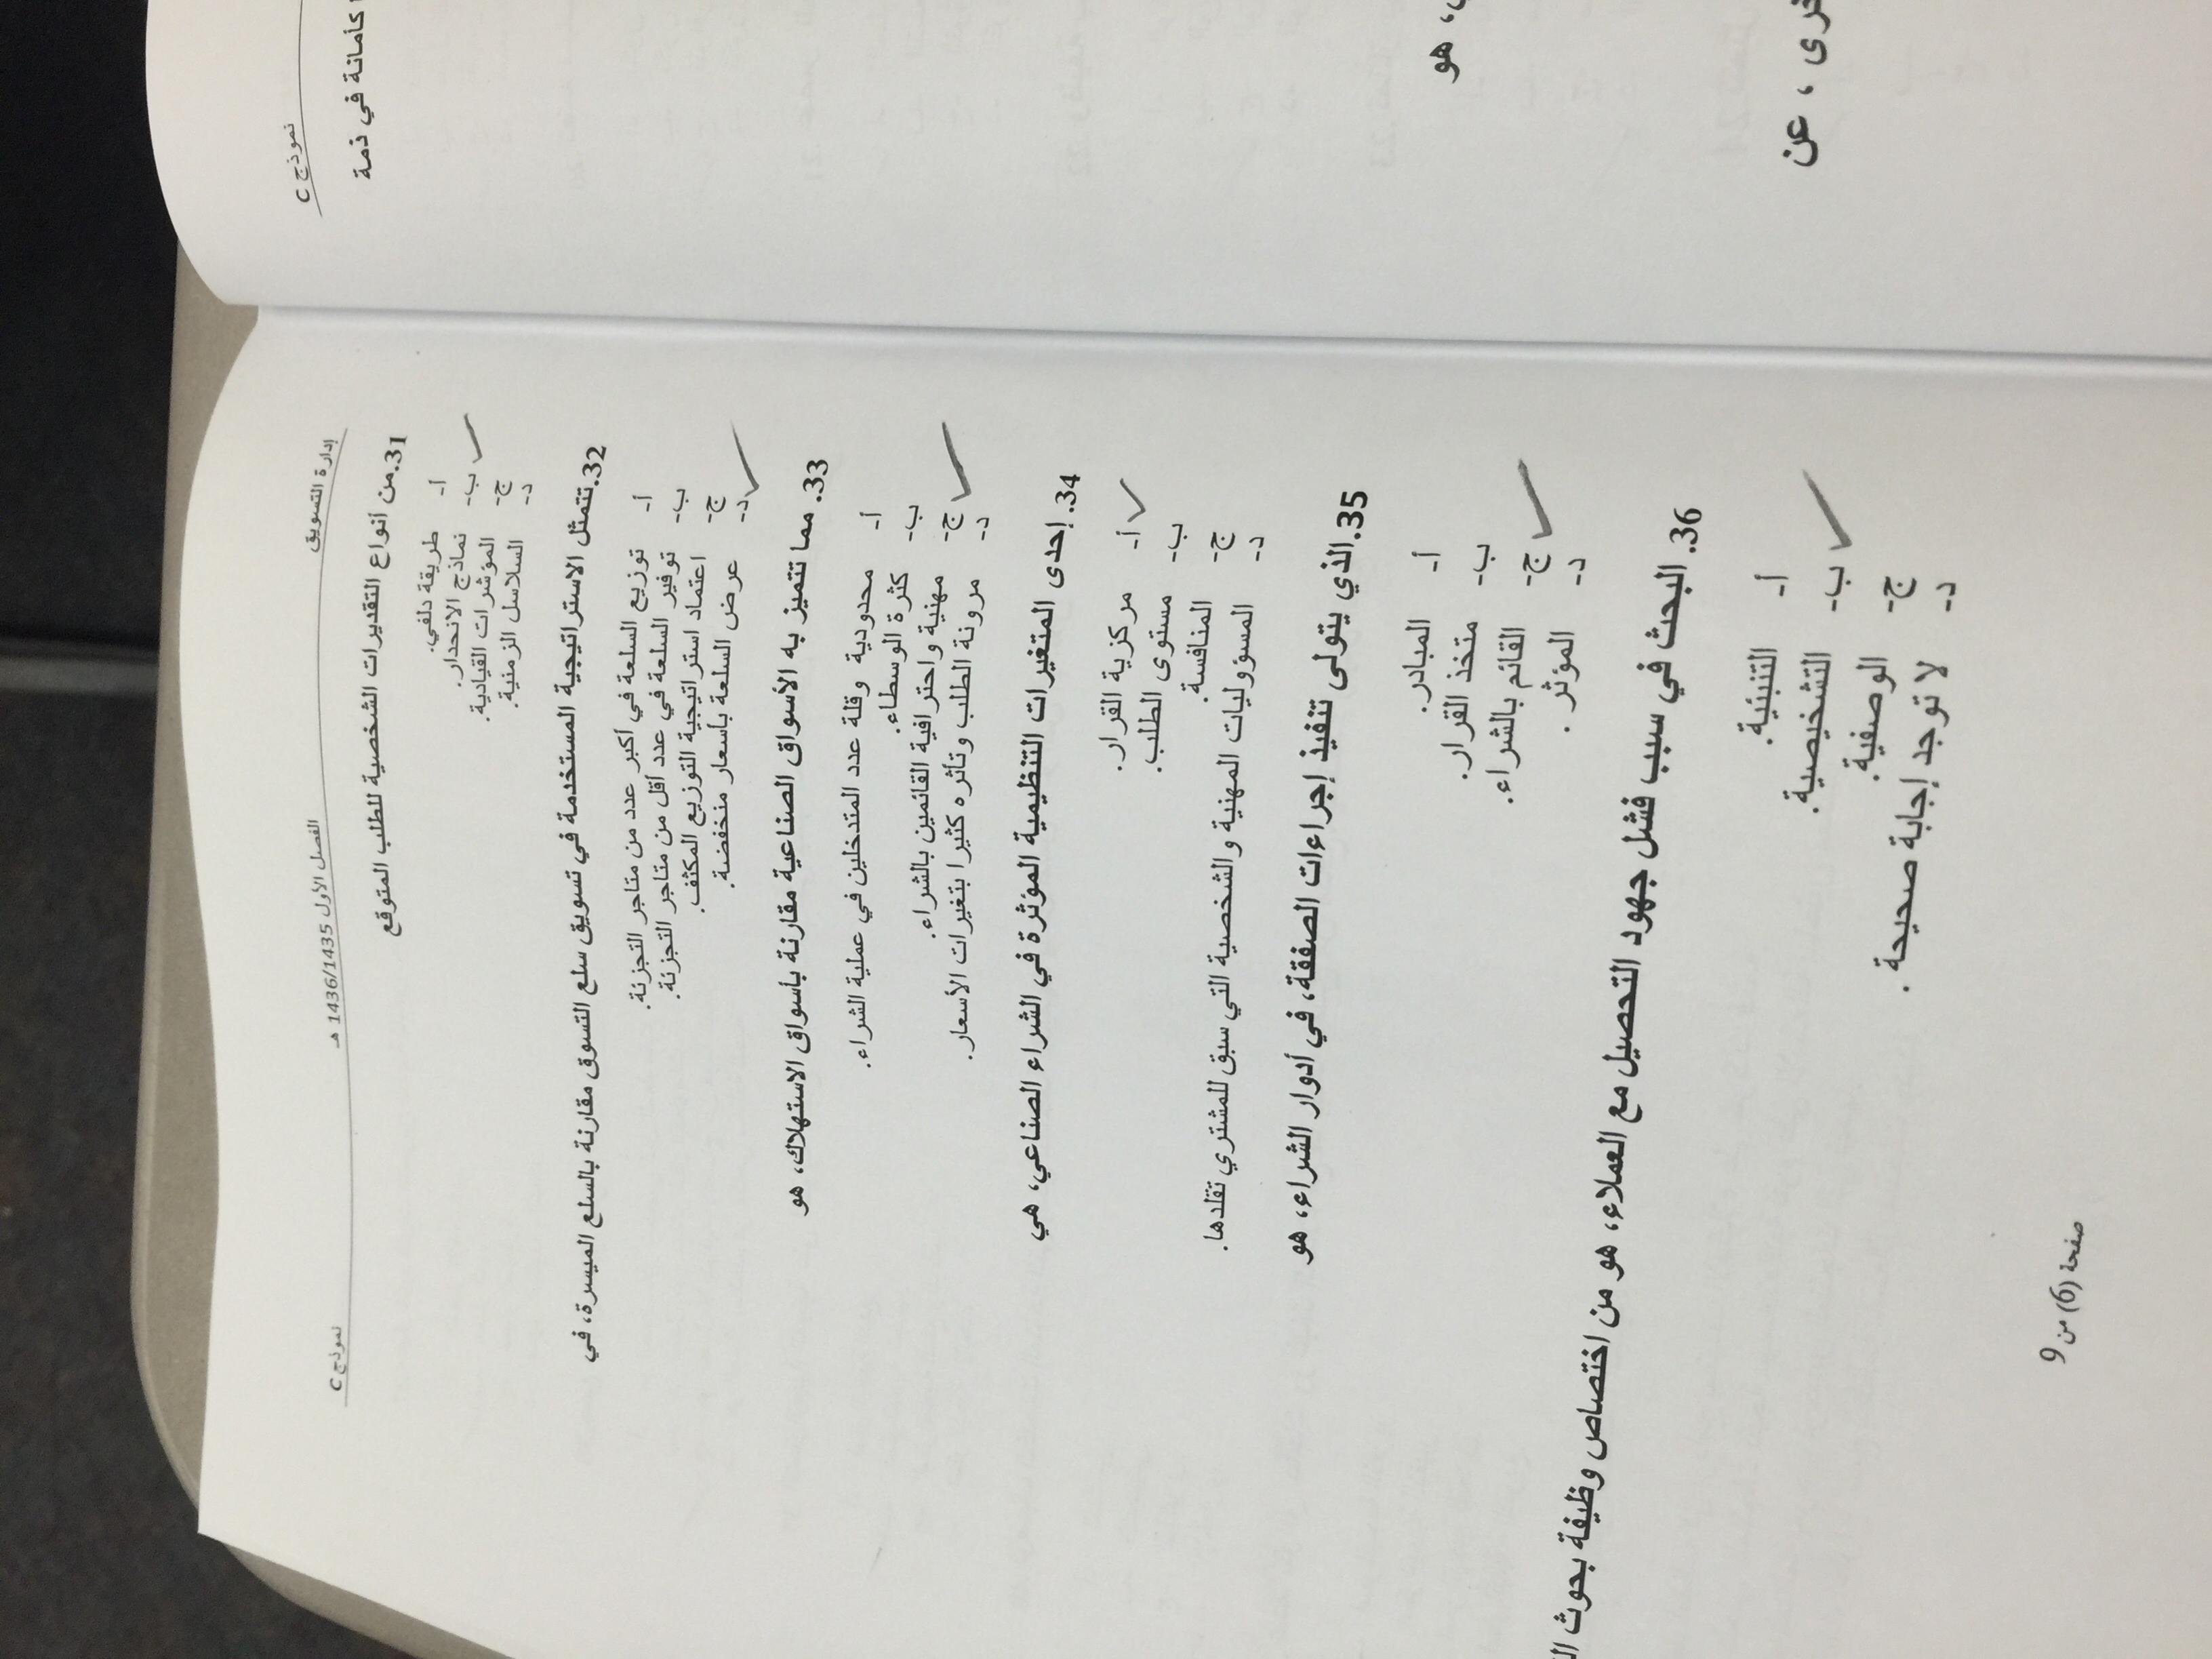 نموذج C
كأمانة في ذمة
هو
خرى ، عن
إدارة التسويق الفصل الأول 1436/1435 هـ نموذج C
31.من أنواع التقديرات الشخصية للطلب المتوقع
أ- طريقة دلفي.
ب- نماذج الانحدار.
ج- المؤشرات القيادية.
د- السلاسل الزمنية.
32.تتمثل الاستراتيجية المستخدمة في تسويق سلع التسوق مقارنة بالسلع الميسرة، في
أ- توزيع السلعة في أكبر عدد من متاجر التجزئة.
ب- توفير السلعة في عدد أقل من متاجر التجزئة.
ج- اعتماد استراتيجية التوزيع المكثف.
د- عرض السلعة بأسعار منخفضة.
33. مما تتميز به الأسواق الصناعية مقارنة بأسواق الاستهلاك، هو
أ- محدودية وقلة عدد المتدخلين في عملية الشراء.
ب- كثرة الوسطاء.
ج- مهنية واحترافية القائمين بالشراء.
د- مرونة الطلب وتأثره كثيرا بتغيرات الأسعار.
34. إحدى المتغيرات التنظيمية المؤثرة في الشراء الصناعي، هي
أ- مركزية القرار.
ب- مستوى الطلب.
ج- المنافسة.
د- المسؤوليات المهنية والشخصية التي سبق للمشتري تقلدها.
35.الذي يتولى تنفيذ إجراءات الصفقة، في أدوار الشراء، هو
أ- المبادر.
ب- متخذ القرار.
ج- القائم بالشراء.
د- المؤثر .
36. البحث في سبب فشل جهود التحصيل مع العملاء، هو من اختصاص وظيفة بحوث
أ- التنبئية.
ب- التشخيصية.
ج- الوصفية.
د- لا توجد إجابة صحيحة .
صفحة (6) من 9